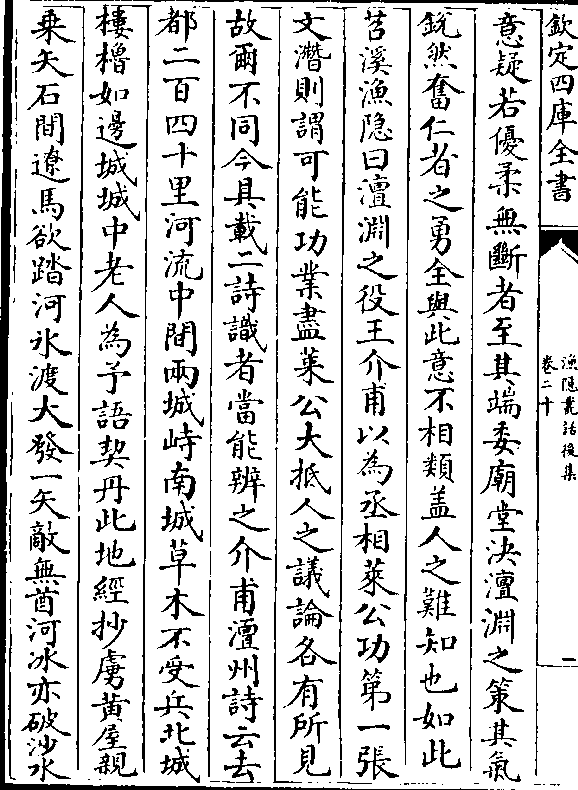 欽定四庫全書
漁隠叢話後集
卷二十
一
意疑若優柔無斷者至其端委廟堂决澶淵之策其氣
鋭然奮仁者之勇全與此意不相類盖人之難知也如此
苕溪漁隠曰澶淵之役王介甫以為丞相萊公功第一張
文潛則謂可能功業盡萊公大抵人之議論各有所見
故爾不同今具載二詩識者當能辨之介甫澶州詩云去
都二百四十里河流中間兩城峙南城草木不受兵北城
樓櫓如邊城城中老人為予語契丹此地經抄虜黄屋親
乗矢石間遼馬欲踏河氷渡大發一矢敵無酋河冰亦破沙水